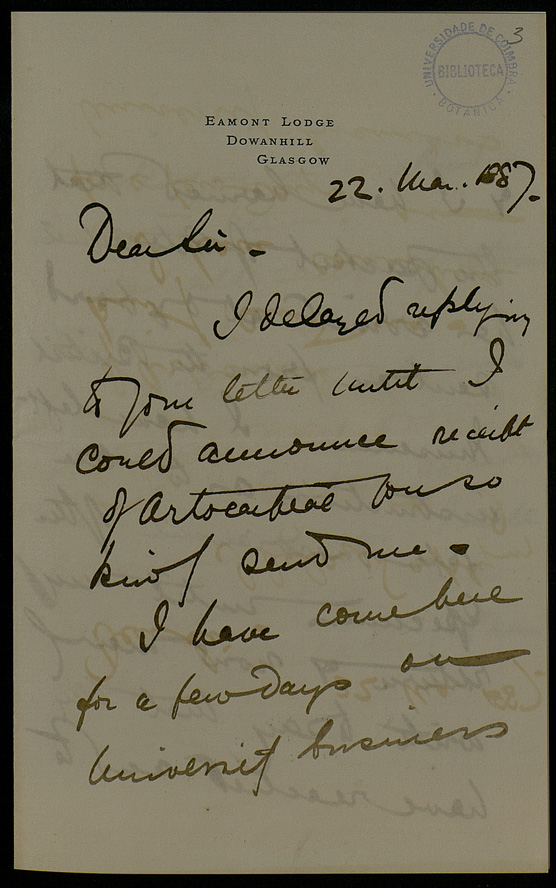 3
UNIVERSIDADE DE COIMBRA
BIBLIOTECA
BOTANICA
EAMONT LODGE
DOWANHILL
GLASGOW
22. Mar. 1887.
Dear Sir -
I delayed replying
to your letter until I
could announce receipt
of Artocarpeae you so
kindly send me.
I have come here
for a few days on
University business